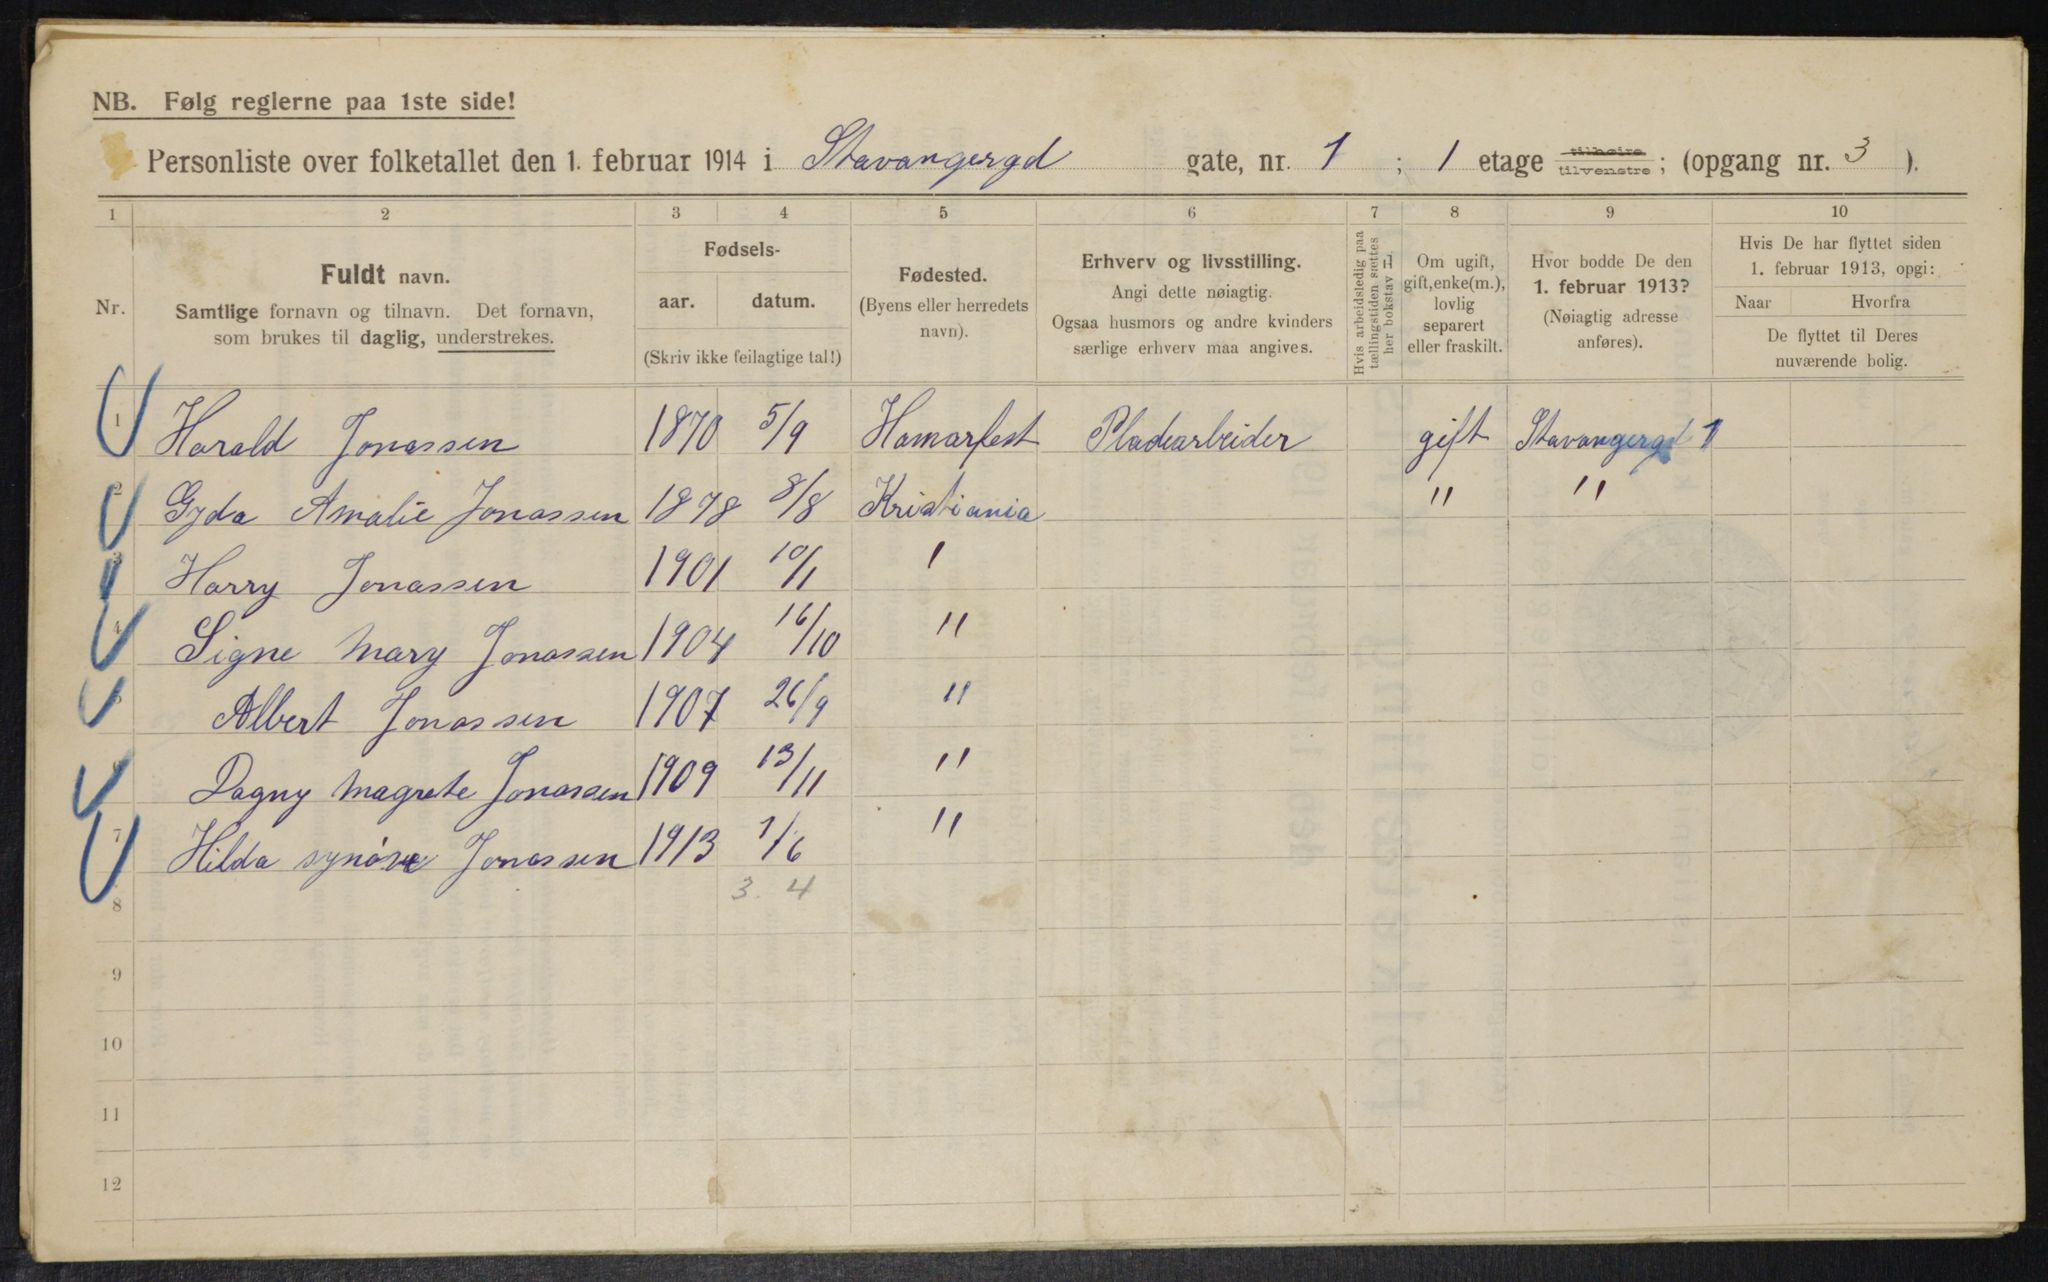 NB. Følg reglerne paa 1ste side!
Personliste over folketallet den 1. februar 1914 i Stavangergd gate, nr. 1 ; 1 etage tilhøire tilvenstre ; (opgang nr. 3 ).
1 2 3 4 5 6 7 8 9 10
Nr.
Fuldt navn.
Samtlige fornavn og tilnavn. Det fornavn,
som brukes til daglig, understrekes.
Fødsels-
aar. datum.
(Skriv ikke feilagtige tal!)
Fødested.
(Byens eller herredets
navn).
Erhverv og livsstilling.
Angi dette nøiagtig.
Ogsaa husmors og andre kvinders
særlige erhverv maa angives.
Hvis arbeidsledig paa
tællingstiden sættes
her bokstav L.
Om ugift,
gift, enke(m.),
lovlig
separert
eller fraskilt.
Hvor bodde De den
1. februar 1913?
(Nøiagtig adresse
anføres).
Hvis De har flyttet siden
1. februar 1913, opgi:
Naar Hvorfra
De flyttet til Deres
nuværende bolig.
1 Harald Jonassen 1870 5/9 Hamarfest Pladearbeider gift Stavangergd 1
2 Gyda Amalie Jonassen 1878 8/8 Kristiania " "
3 Harry Jonassen 1901 10/1 '
4 Signe Mary Jonassen 1904 16/10 "
5 Albert Jonassen 1907 26/9 "
6 Dagny Magrete Jonassen 1909 13/11 "
7 Hilda synøve Jonassen 1913 1/6 "
8 3. 4
9
10
11
12